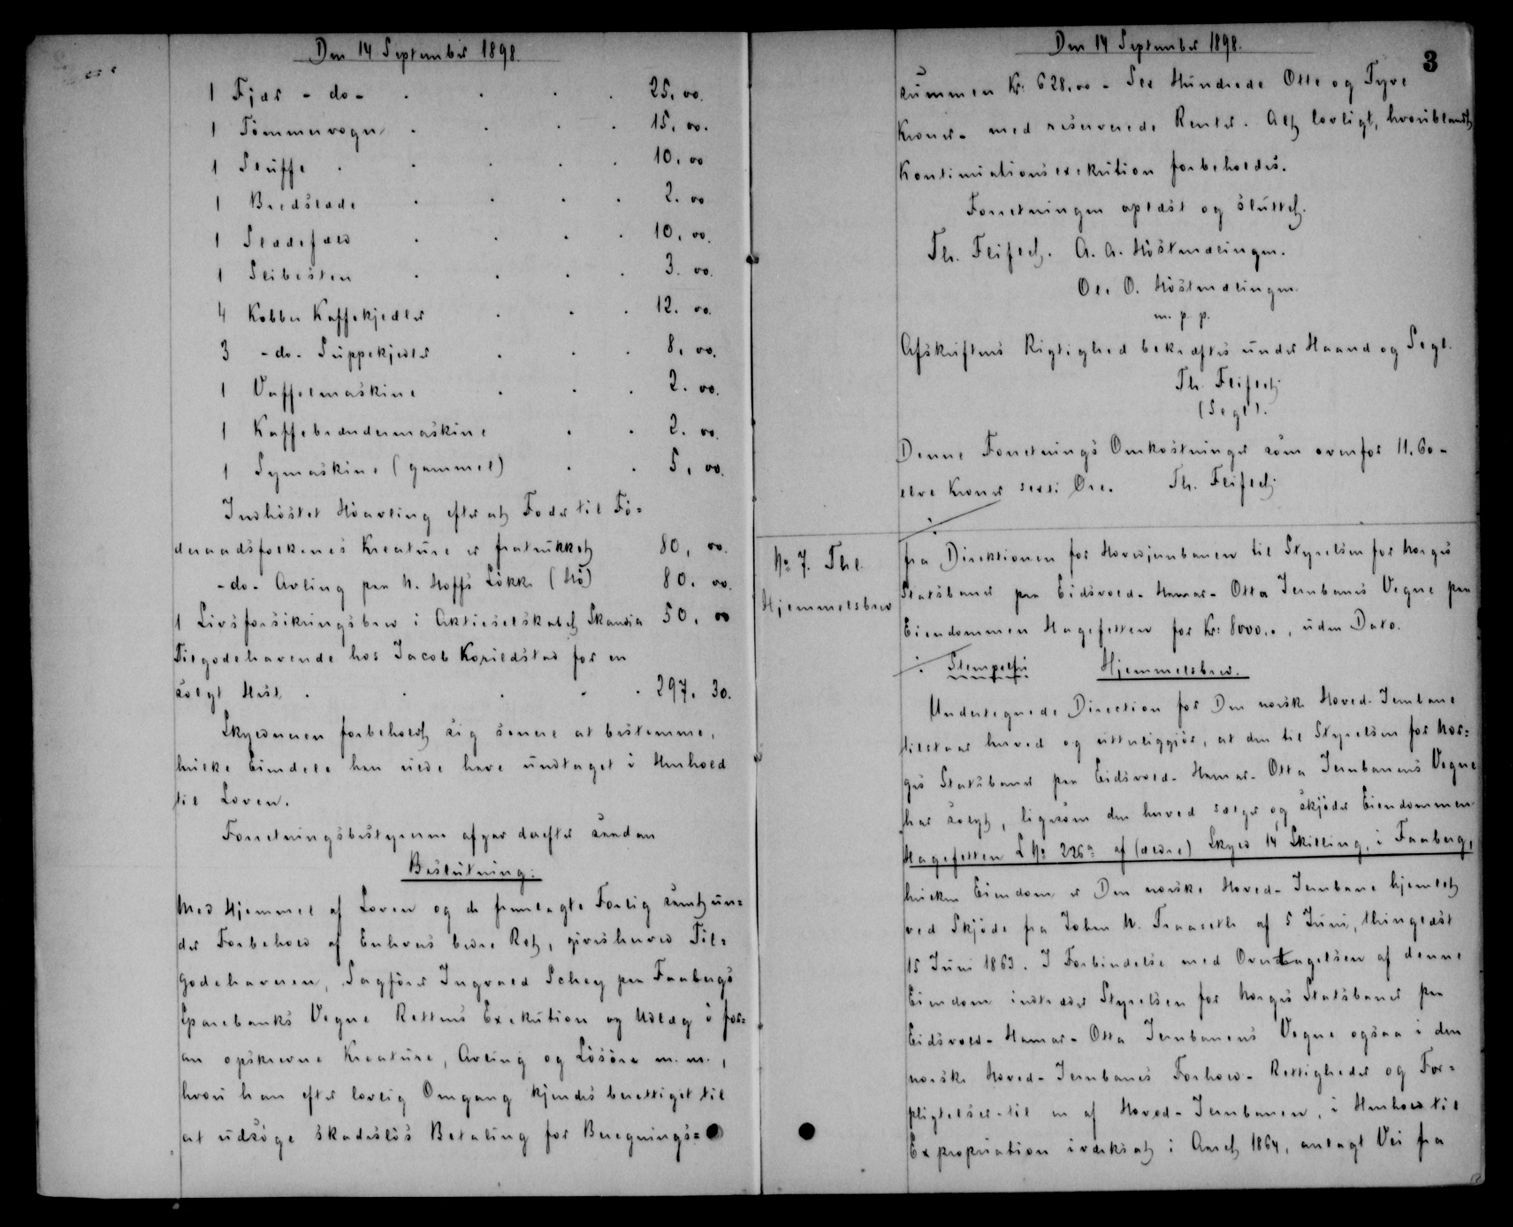 Den 14 September 1898.
1 Fjær - do - . . . . 25. 00.
1 Tømmervogn . . . . 15. 00.
1 Sluffe . . . . . 10. 00
1 Bredslæde . . . . 2. 00
1 Sladefæld . . . . 10. 00.
1 Slibesten . . . . 3. 00.
4 Kobber Kaffekjedler . . . 12. 00.
3 - do - Suppekjedler . . . 8. 00.
1 Vaffelmaskine . . . 2. 00.
1 Kaffebrændermaskine . . 2. 00.
1 Symaskine (gammel) . . 5. 00.
Indhøstet Høavling efterat Foder til Fø=
deraadsfolkenes Kreature er fratrukket 80, 00.
- do - Avling paa N. Hoffs Løkke (Hø) 80. 00.
1 Livsforsikringsbrev i Aktieselskabet Skandia 50. 00
Tilgodehavende hos Jacob for en
solgt Hest . . . . . 297. 30.
Skyldneren forbeholdt sig senere at bestemme,
hvilke Eiendele han vilde have undtaget i Henhold
til Loven.
Forretningsbestyreren afgav derefter saadan
Beslutning:
Med Hjemmel af Loven og de fremlagte Forlig samt un=
der Forbehold af Enhvers bedre Ret, gives herved Til=
godehaveren, Sagfører Ingvald Schey paa Faabergs
Sparebanks Vegne Rettens Exekution og Udlæg i for=
an opskrevne Kreature, Avling og Løsøre m. m.,
hvori han efter lovlig Omgang kjendes berettiget til
at udsøge skadesløs Betaling for Beregnings=
Den 14 September 1898.
3
summen Kr. 628,00 - Sex Hundrede Otte og Tyve
Kroner - med reserverede Renter. Alt lovligt, hvoriblandt
Kontinuationsexekution forbeholdes.
Forretningen oplæst og sluttet.
Th. A. A. Høstmælingen.
Ole O. Høstmælingen.
m. p. p.
Afskriftens Rigtighed bekræftes under Haand og Segl.
Th.
(Segl).
Denne Forretnings Omkostninger som ovenfor 11.60 -
elve Kroner sexti Øre. Th.
No 7. Thl.
Hjemmelsbrev
fra Direktionen for Hovedjernbanen til Styrelsen for Norges
Statsbaner paa Eidsvold - Hamar - Otta Jernbanes Vegne paa
Eiendommen Hagefesten for Kr. 8000.., uden Dato.
Stempelfri Hjemmelsbrev.
Undertegnede Direction for Den norske Hoved-Jernbane
tilstaar herved og vitterliggjør, at den til Styrelsen for Nor=
ges Statsbaner paa Eidsvold - Hamar - Otta Jernbanens Vegne
har solgt, ligesom den herved sælger og skjøder Eiendommen
Hagefesten L No 226a af (ældre) Skyld 14 Skilling, i Faaberg,
hvilken Eiendom er Den norske Hoved-Jernbane hjemlet
ved Skjøde fra John N. Traaseth af 5 Juni, thinglæst
15 Juni 1863. I Forbindelse med Overtagelsen af denne
Eiendom indtræder Styrelsen for Norges Statsbaner paa
Eidsvold - Hamar - Otta Jernbanens Vegne ogsaa i den
norske Hoved-Jernbanes Forhold - Rettigheder og For=
pligtelser - til en af Hoved-Jernbanen, i Henhold til
Expropriation iværksat i Aaret 1864, anlagt Vei fra